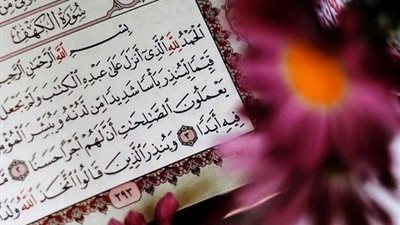 سُورَةُ الكَهْفِ
بِسْمِ ٱللَّهِ ٱلرَّحْمَٰنِ ٱلرَّحِيمِ
ٱلْحَمْدُ لِلَّهِ ٱلَّذِىٓ أَنزَلَ عَلَىٰ عَبْدِهِ ٱلْكِتَٰبَ وَلَمْ يَجْعَل
قَيِّمًا لِّيُنذِرَ بَأْسًا شَدِيدًا مِّن لَّدُنْهُ وَيُبَشِّرَ ٱلْمُؤْمِ
يَعْمَلُونَ ٱلصَّٰلِحَٰتِ أَنَّ لَهُمْ أَجْرًا حَسَنًا ٢
فِيهِ أَبَدًا ٣ وَيُنذِرَ ٱلَّذِينَ قَالُوا۟ ٱتَّخَذَ ٱللَّهُ وَلَدًا
٢٩٣